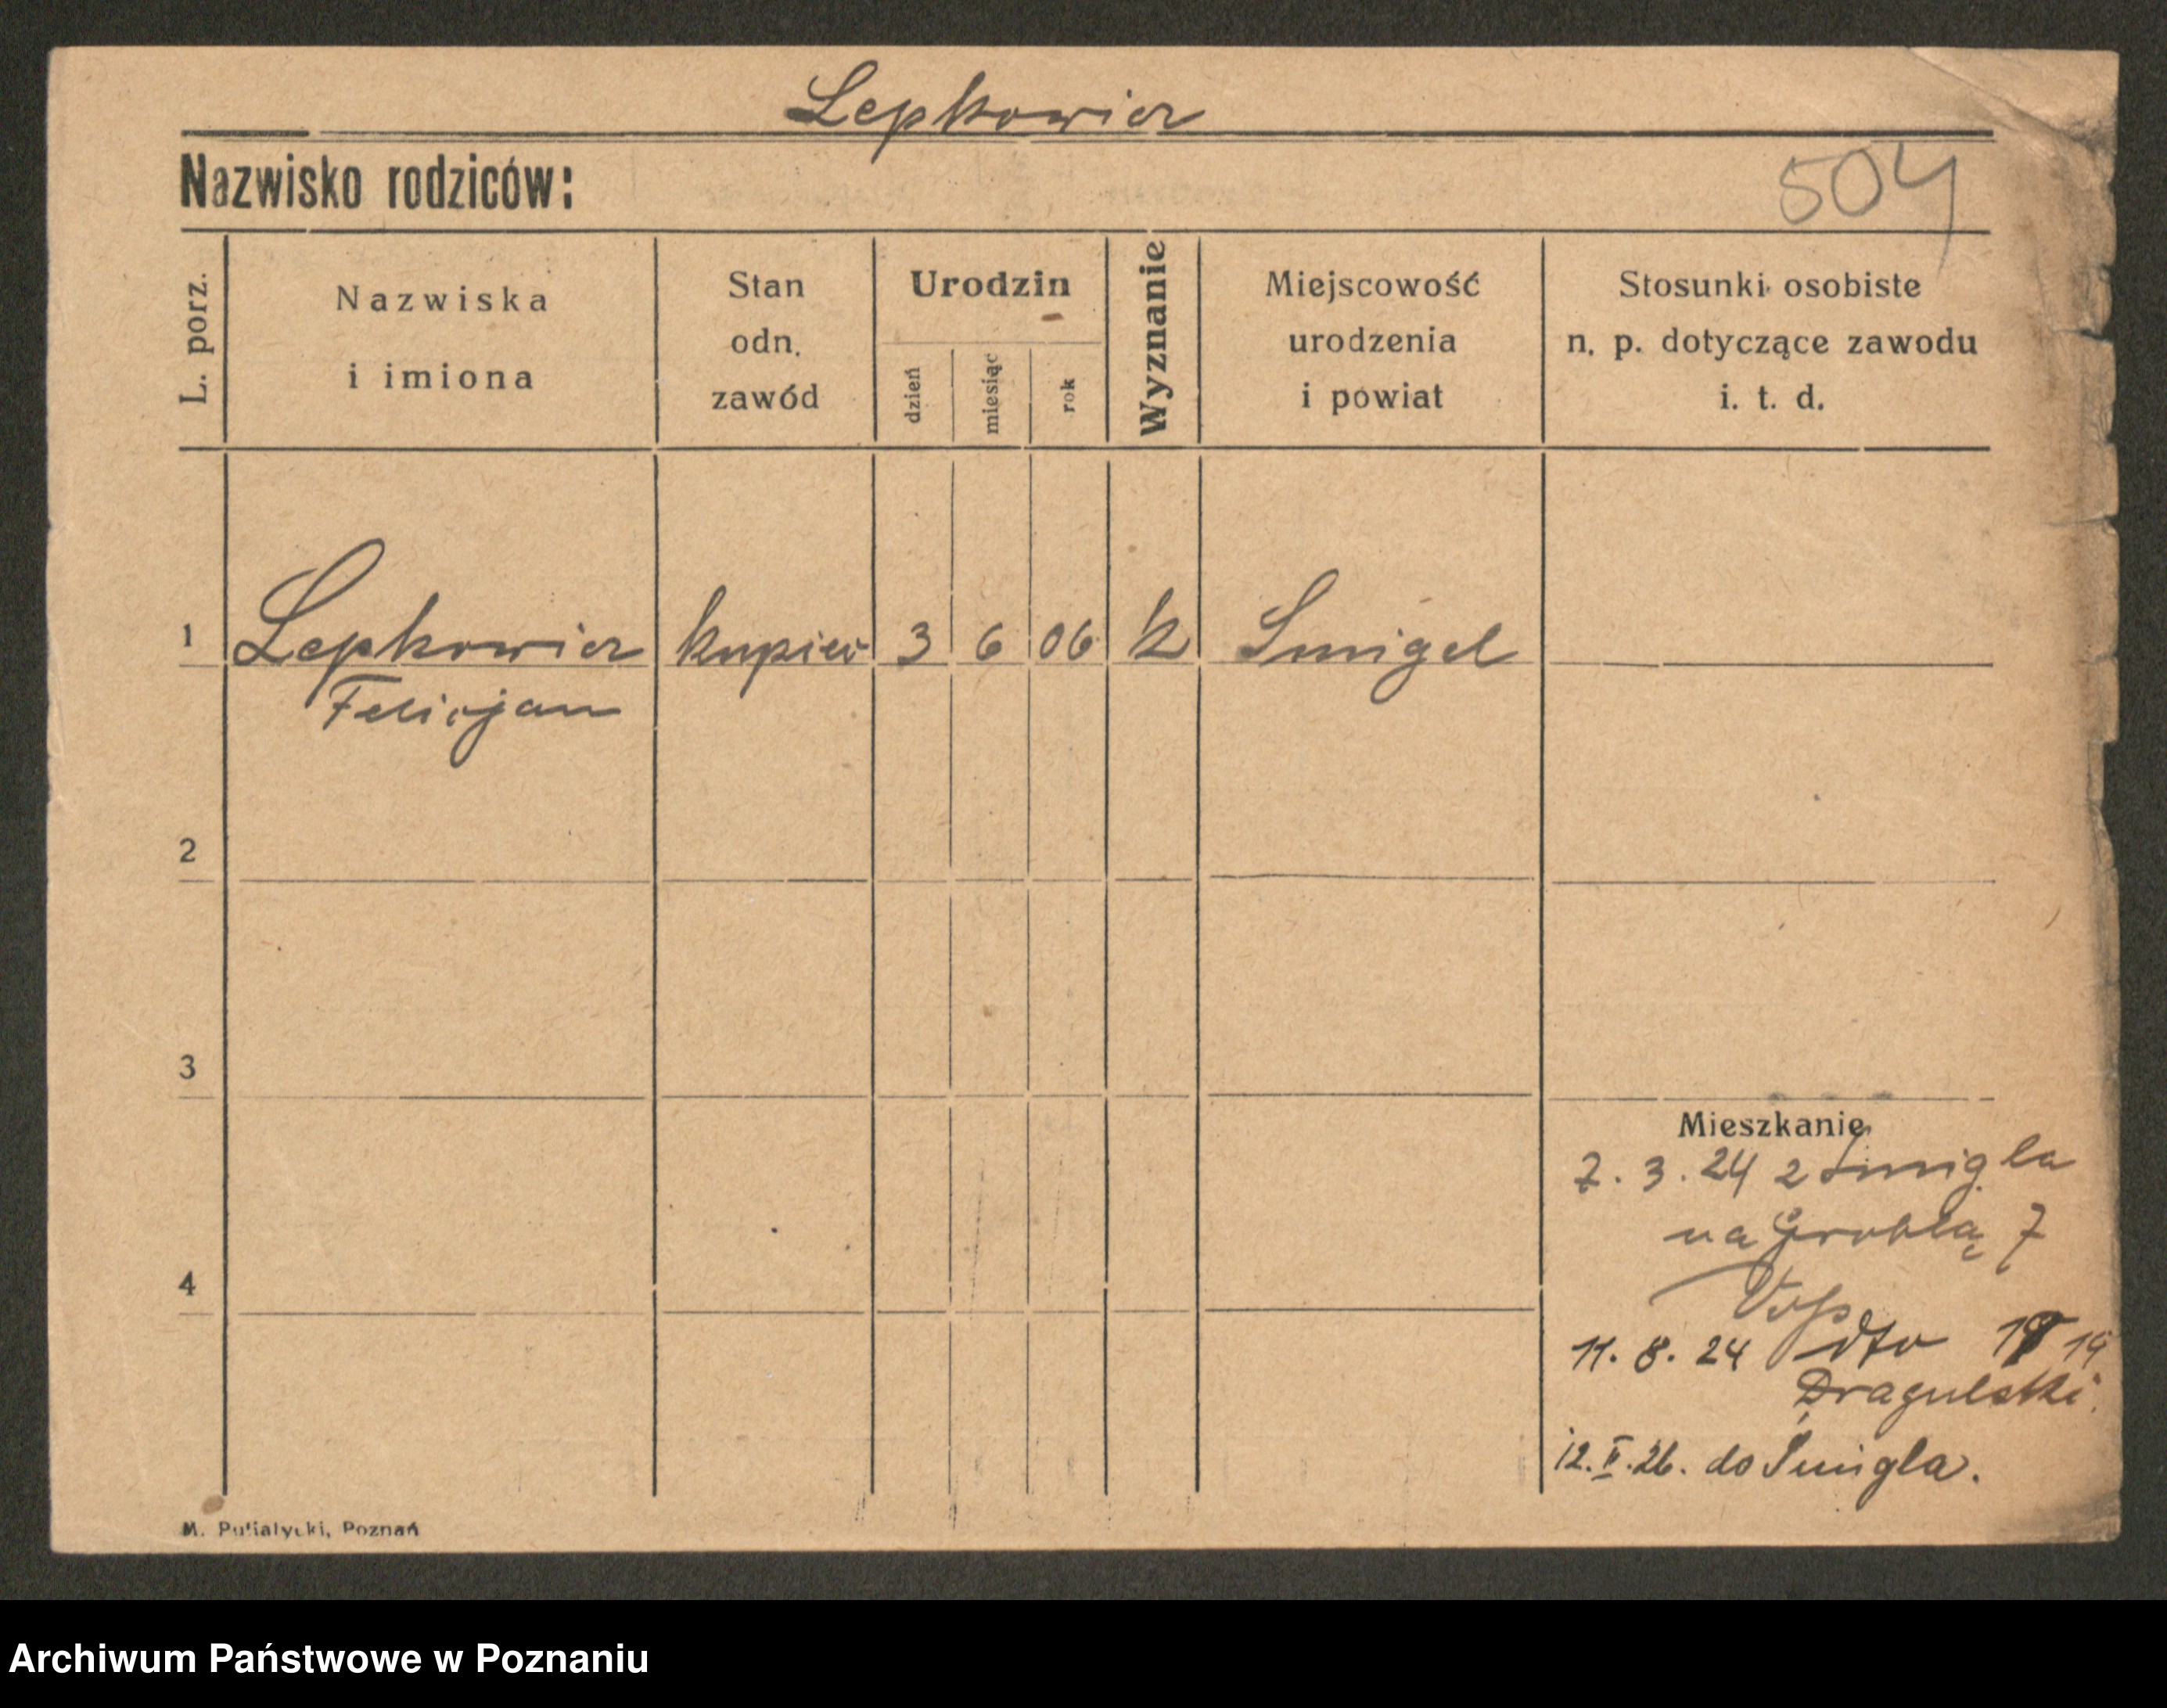 Lepkowicz
Nazwisko rodziców:
504
L. porz.
Nazwiska
i imiona
Stan
odn.
zawód
Urodzin
dzień
miesiąc
rok
Wyznanie
Miejscowość
urodzenia
i powiat
Stosunki osobiste
n. p. dotyczące zawodu
i. t. d.
1 Lepkowicz kupiec 3 6 06 k Smigel
Felicjan
2
3
Mieszkanie
7. 3. 24 z Smigla
na Groblą 7
4
11. 8. 24 dto 19
12. II. 26. do Śmigla.
M. Putiatycki, Poznań
Archiwum Państwowe w Poznaniu